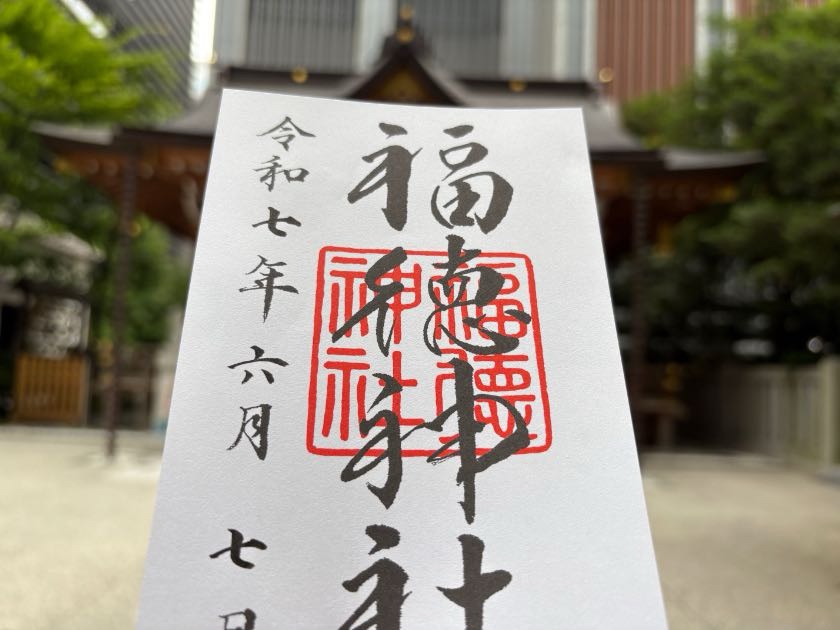 福徳神社
福徳神社
令和七年六月七日